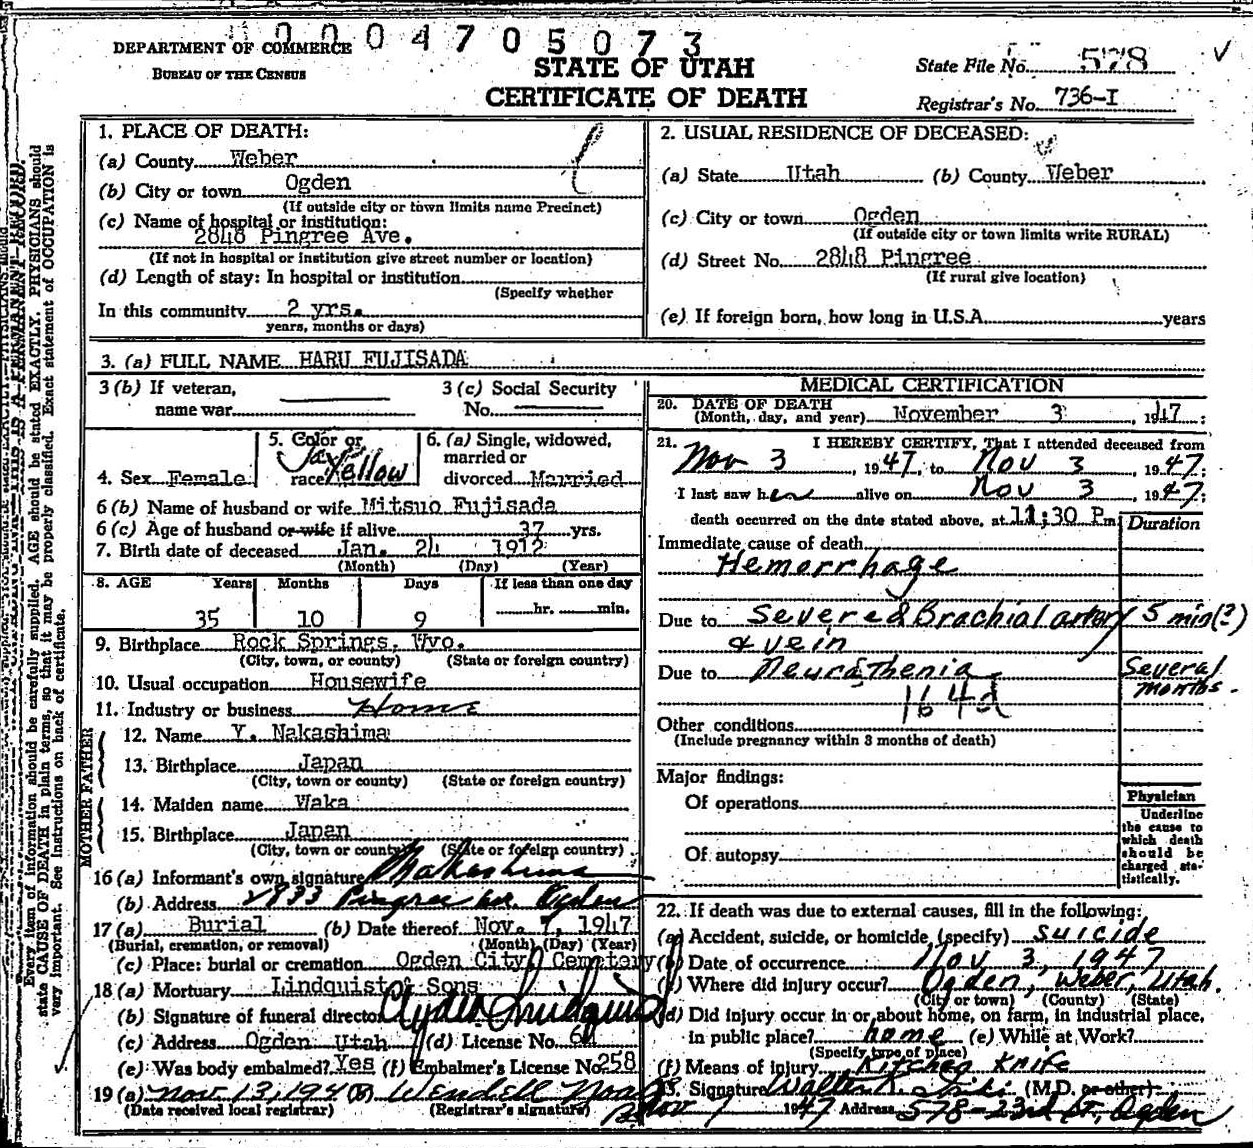 0004705073
DEPARTMENT OF COMMERCE
BUREAU OF THE CENSUS
STATE OF UTAH
CERTIFICATE OF DEATH
State File No. 578
Registrar's No. 736-I
1. PLACE OF DEATH:
(a) County Weber
(b) City or town Ogden
(If outside city or town limits name Precinct)
(c) Name of hospital or institution:
2848 Pingree Ave.
(If not in hospital or institution give street number or location)
(d) Length of stay: In hospital or institution
(Specify whether
In this community 2 yrs.
years, months or days)
2. USUAL RESIDENCE OF DECEASED:
(a) State Utah (b) County Weber
(c) City or town Ogden
(If outside city or town limits write RURAL)
(d) Street No. 2848 Pingree
(If rural give location)
(e) If foreign born, how long in U.S.A. years
3. (a) FULL NAME HARU FUJISADA
3 (b) If veteran,
name war
3 (c) Social Security
No.
4. Sex Female
5. Color or
race Yellow
6. (a) Single, widowed,
married or
divorced Married
6 (b) Name of husband or wife Mitsuo Fujisada
6 (c) Age of husband or wife if alive 37 yrs.
7. Birth date of deceased Jan. 24 1912
(Month) (Day) (Year)
8. AGE Years Months Days If less than one day
35 10 9 hr. min.
9. Birthplace Rock Springs, Wyo.
(City, town, or county) (State or foreign country)
10. Usual occupation Housewife
11. Industry or business Home
FATHER
12. Name Y. Nakashima
13. Birthplace Japan
(City, town or county) (State or foreign country)
MOTHER
14. Maiden name Waka
15. Birthplace Japan
(City, town or county) (State or foreign country)
16 (a) Informant's own signature Nakashima
(b) Address 2833 Pingree Ave. Ogden
17 (a) Burial (b) Date thereof Nov. 7, 1947
(Burial, cremation, or removal) (Month) (Day) (Year)
(c) Place: burial or cremation Ogden City Cemetery
18 (a) Mortuary Lindquist & Sons
(b) Signature of funeral director Clyde Lindquist
(c) Address Ogden Utah (d) License No.
(e) Was body embalmed? Yes (f) Embalmer's License No. 258
19 (a) Nov 13, 194 (b) Wendell
(Date received local registrar) (Registrar's signature)
MEDICAL CERTIFICATION
20. DATE OF DEATH
(Month, day, and year) November 3 1947
21. I HEREBY CERTIFY, That I attended deceased from
Nov 3, 1947, to Nov 3, 1947;
I last saw her alive on Nov 3, 1947;
death occurred on the date stated above, at 11:30 P m.
Duration
Immediate cause of death
Hemorrhage
Due to Severed Brachial artery 5 min(?)
& vein
Due to Neurasthenia Several months.
164d
Other conditions
(Include pregnancy within 3 months of death)
Major findings:
Of operations
Of autopsy
Physician
Underline
the cause to
which death
should be
charged sta-
tistically.
22. If death was due to external causes, fill in the following:
(a) Accident, suicide, or homicide (specify) Suicide
(b) Date of occurrence Nov 3, 1947
(c) Where did injury occur? Ogden, Weber, Utah.
(City or town) (County) (State)
(d) Did injury occur in or about home, on farm, in industrial place,
in public place? home (e) While at Work?
(Specify type of place)
(f) Means of injury Kitchen Knife
23. Signature Walter (M.D. or other)
Nov 7 1947 Address 578-23rd St, Ogden
Every item of information should be carefully supplied. AGE should be stated EXACTLY. PHYSICIANS should
state CAUSE OF DEATH in plain terms, so that it may be properly classified. Exact statement of OCCUPATION is
very important. See instructions on back of certificate.